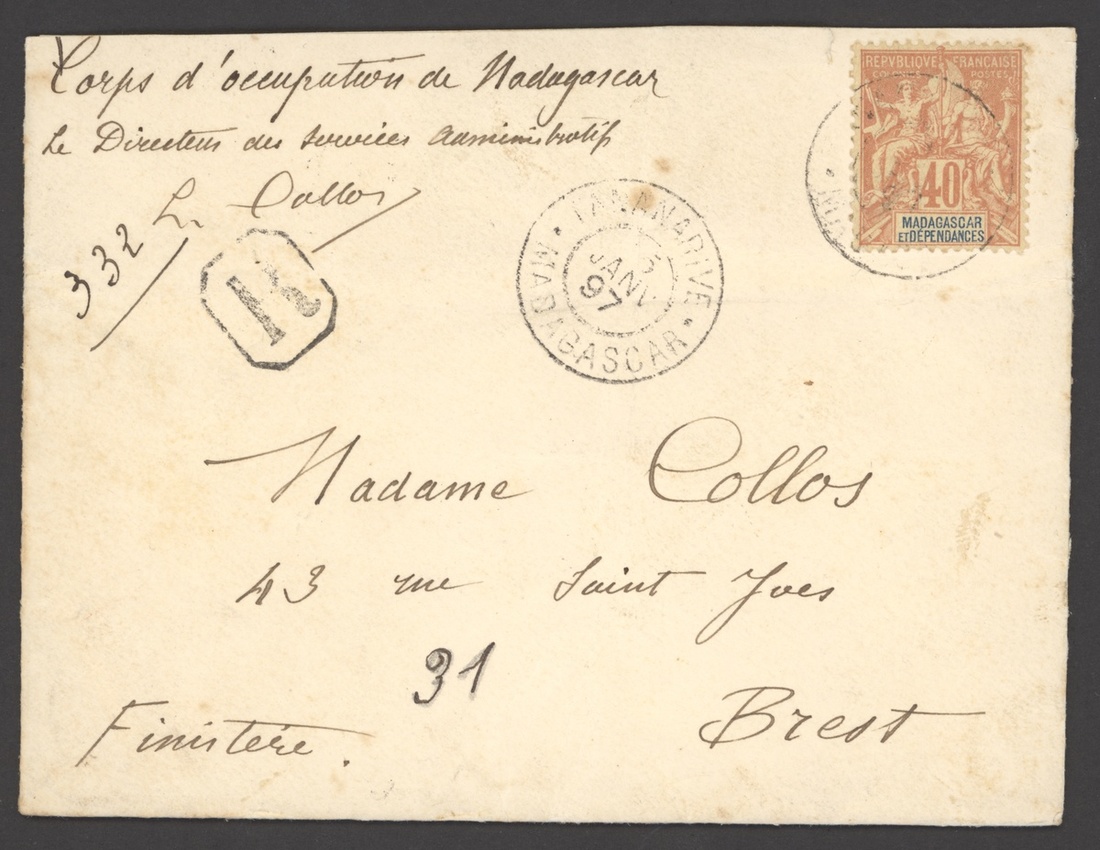 Corps d'occupation de Madagascar
Le Directeur des services administratifs
L. Collos
332
R
TANANARIVE
5
JANV
97
MADAGASCAR
REPVBLIQVE FRANÇAISE
COLONIES POSTES
40
MADAGASCAR
ET DÉPENDANCES
Madame Collos
43 rue Saint Yves
31
Brest
Finistère.